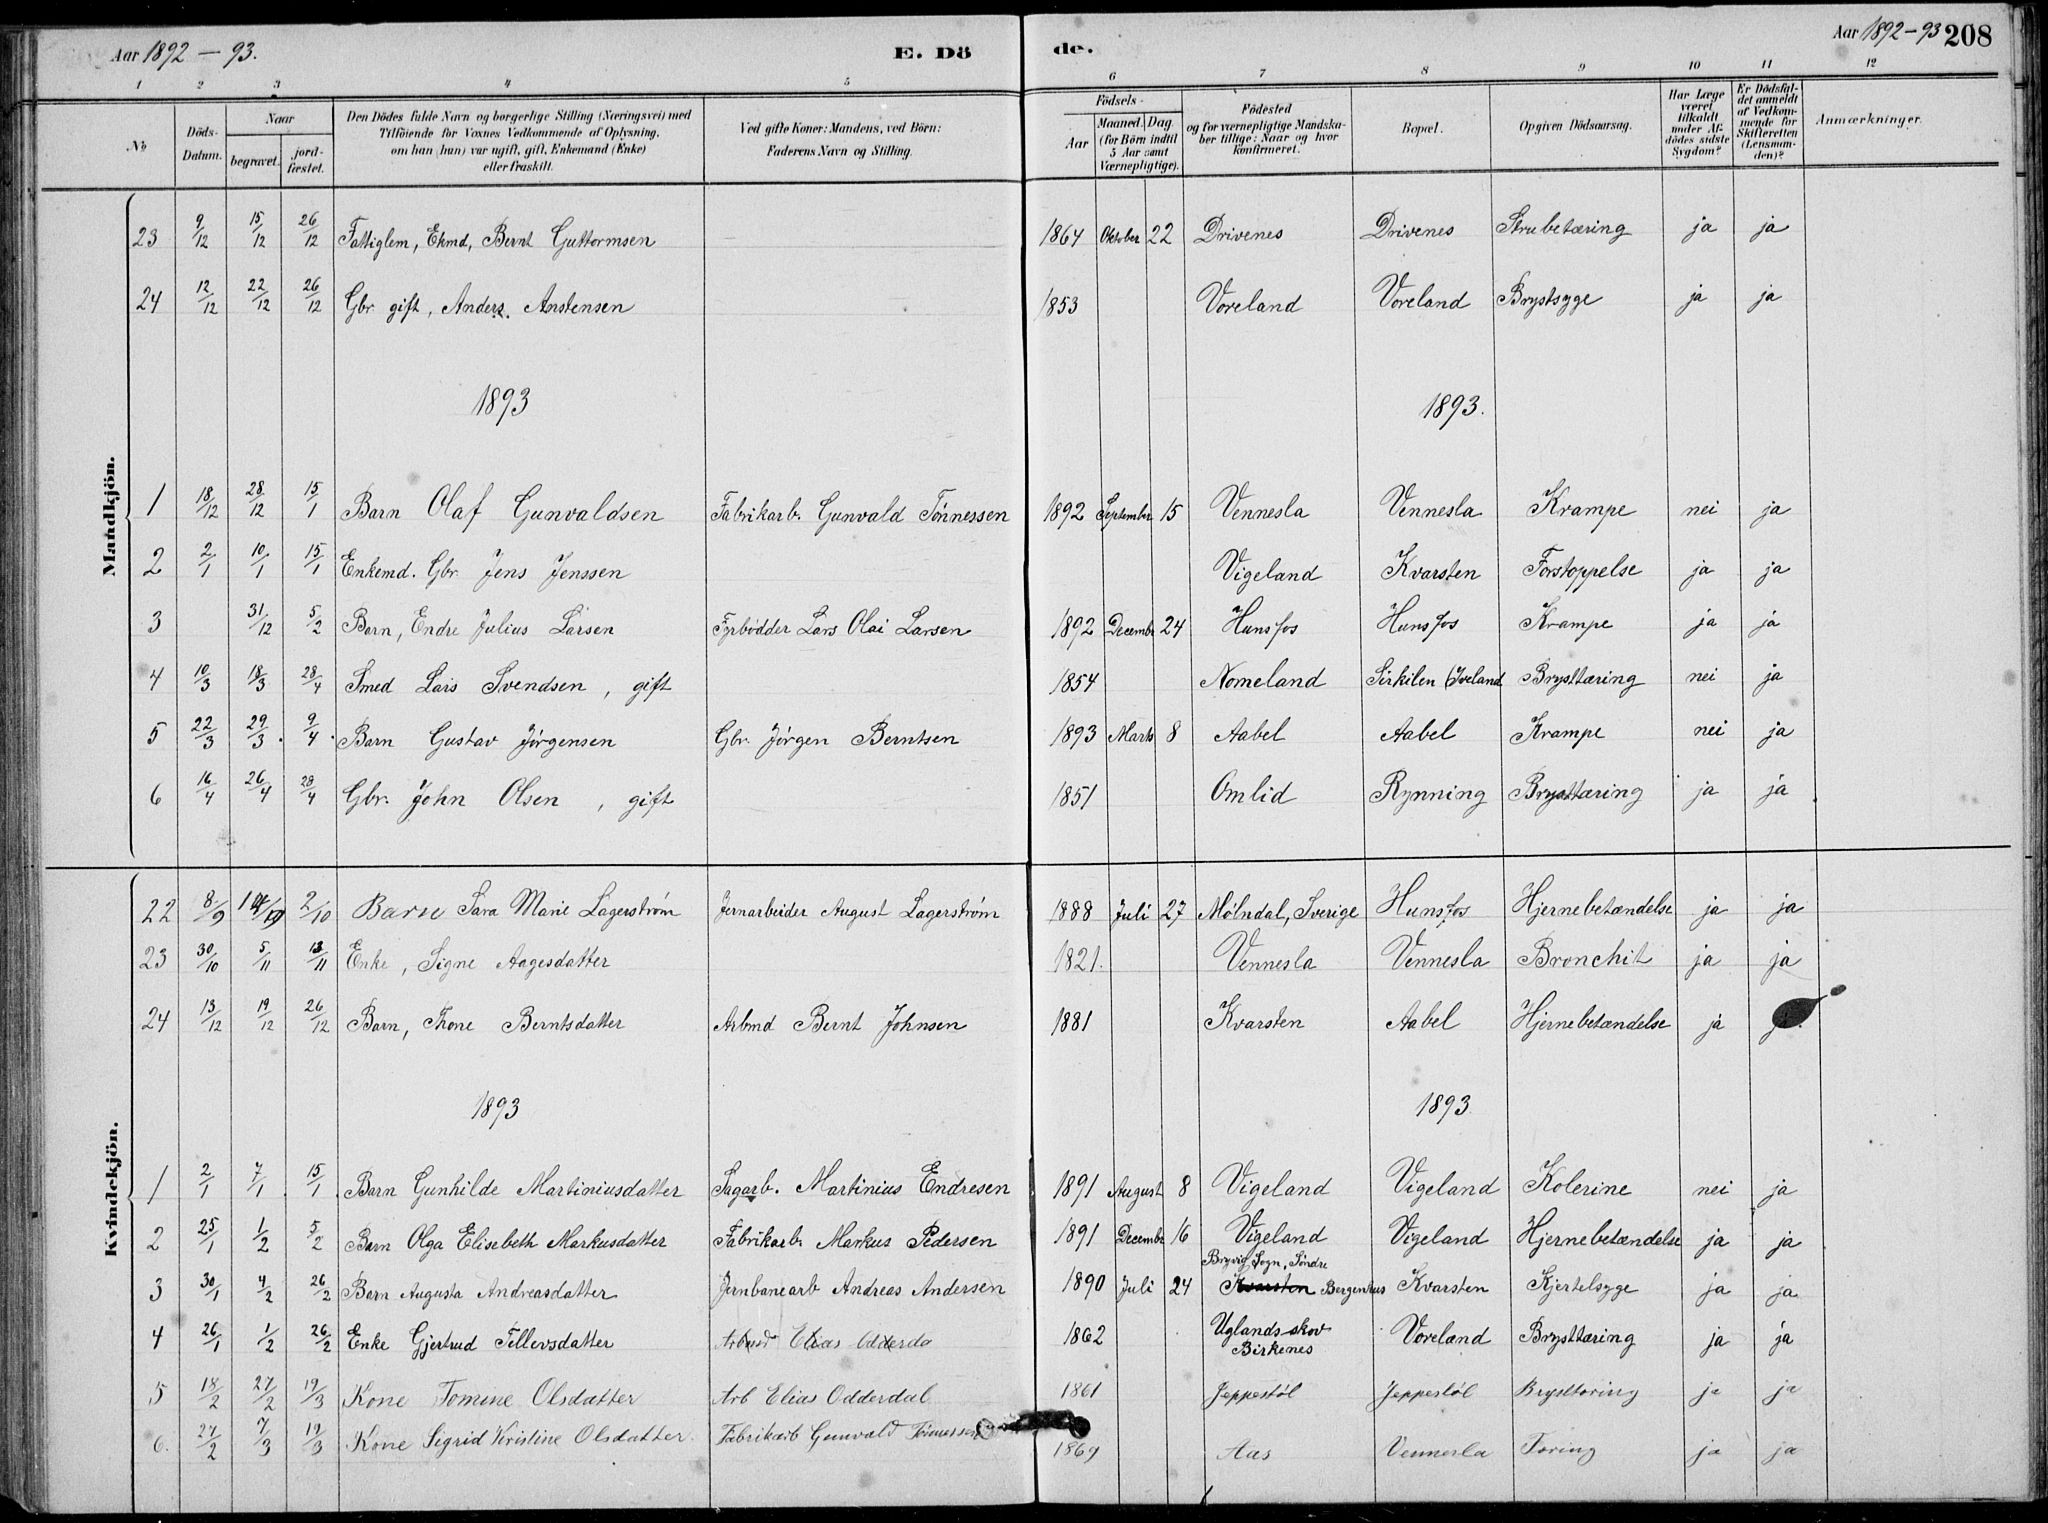 Aar 1892 – 93. E. Dö de. Aar 1892 – 93 208
1 2 3 4 5 6 7 8 9 10 11 12
No
Döds-Datum.
Naar
begravet.
jordfæstet.
Den Dödes fulde Navn og borgerlige Stilling (Næringsvei) med
Tilföiende for Voxnes Vedkommende af Oplysning,
om han (hun) var ugift, gift, Enkemand (Enke)
eller fraskilt.
Ved gifte Koner: Mandens, ved Börn:
Faderens Navn og Stilling.
Födsels-
Aar
Maaned. Dag.
(for Börn indtil
5 Aar samt
Værnepligtige).
Födested
og for værnepligtige Mandska-
ber tillige: Naar og hvor
konfirmeret.
Bopæl.
Opgiven Dödsaarsag.
Har Læge
været
tilkaldt
under Af-
dödes sidste
Sygdom?
Er Dödsfal-
det anmeldt
af Vedkom-
mende for
Skifteretten
(Lensman-
den)?
Anmærkninger.
Mandkjön.
23 9/12 15/12 26/12 Fattiglem, Ekmd, Bernt Guttormsen 1864 Oktober 22 Drivenes Drivenes Strubetæring ja ja
24 12/12 22/12 26/12 Gbr gift, Anders. Anstensen 1853 Voreland Voreland Brystsyge ja ja
1893 1893.
1 18/12 28/12 15/1 Barn Olaf Gunvaldsen Fabrikarb. Gunvald Tönnessen 1892 September 15 Vennesla Vennesla Krampe nei ja
2 2/1 10/1 15/1 Enkemd. Gbr. Jens Jenssen Vigeland Kvarsten Forstoppelse ja ja
3 31/12 5/2 Barn, Endre Julius Larsen Fyrbödder Lars Olai Larsen 1892 Decembr 24 Hunsfos Hunsfos Krampe ja ja
4 10/3 18/3 28/4 Smed Lars Svendsen, gift 1854 Nomeland Sirkilen (Iveland Brysttæring nei ja
5 22/3 29/3. 9/4. Barn Gustav Jörgensen Gbr. Jörgen Berntsen 1893 Marts 8 Aabel Aabel Krampe nei ja
6 16/4 26/4 28/4 Gbr. John Olsen, gift 1851 Omlid Rynning Brysttæring ja ja
Kvindekjön.
22 8/9 2/10 Barn Sara Marie Lagerström Jernarbeider August Lagerström 1888 Juli 27 Mölndal, Sverige Hunsfos Hjernebetændelse ja ja
23 30/10 5/11 13/11 Enke, Signe Aagesdatter 1821. Vennesla Vennesla Bronchit ja ja
24 13/12 19/12 26/12 Barn, Thone Berntsdatter Arbmd Bernt Johnsen 1881 Kvarsten Aabel Hjernebetændelse ja
1893 1893.
1 2/1 7/1. 15/1. Barn Gunhilde Martiniusdatter Sagarb. Martinius Endresen 1891 August 8 Vigeland Vigeland Kolerine nei ja
2 25/1 1/2 5/2 Barn Olga Elisebeth Markusdatter Fabrikarb. Markus Pedersen 1891 Decembr 16 Vigeland Vigeland Hjernebetændelse ja ja
Sogn, Söndre
3 30/1 4/2 26/2 Barn Augusta Andreasdatter Jernbanearb Andreas Andersen 1890 Juli 24 Kvarsten Bergenhus Kvarsten Kjertelsyge ja ja
4 26/1 1/2 26/2 Enke Gjertrud Tellevsdatter Elias Odderda 1862 Uglandsskov
Birkenes Voreland Brysttæring ja ja
5 18/2 27/2 19/3 Kone Tomine Olsdatter Arb Elias Odderdal 1861 Jeppestöl Jeppestöl Brysttæring ja ja
6. 27/2 7/3 19/3 Kone Sigrid Kristine Olsdatter. Fabrikarb Gunvald Tönnessen 1869 Aas Vennesla Tæring ja ja